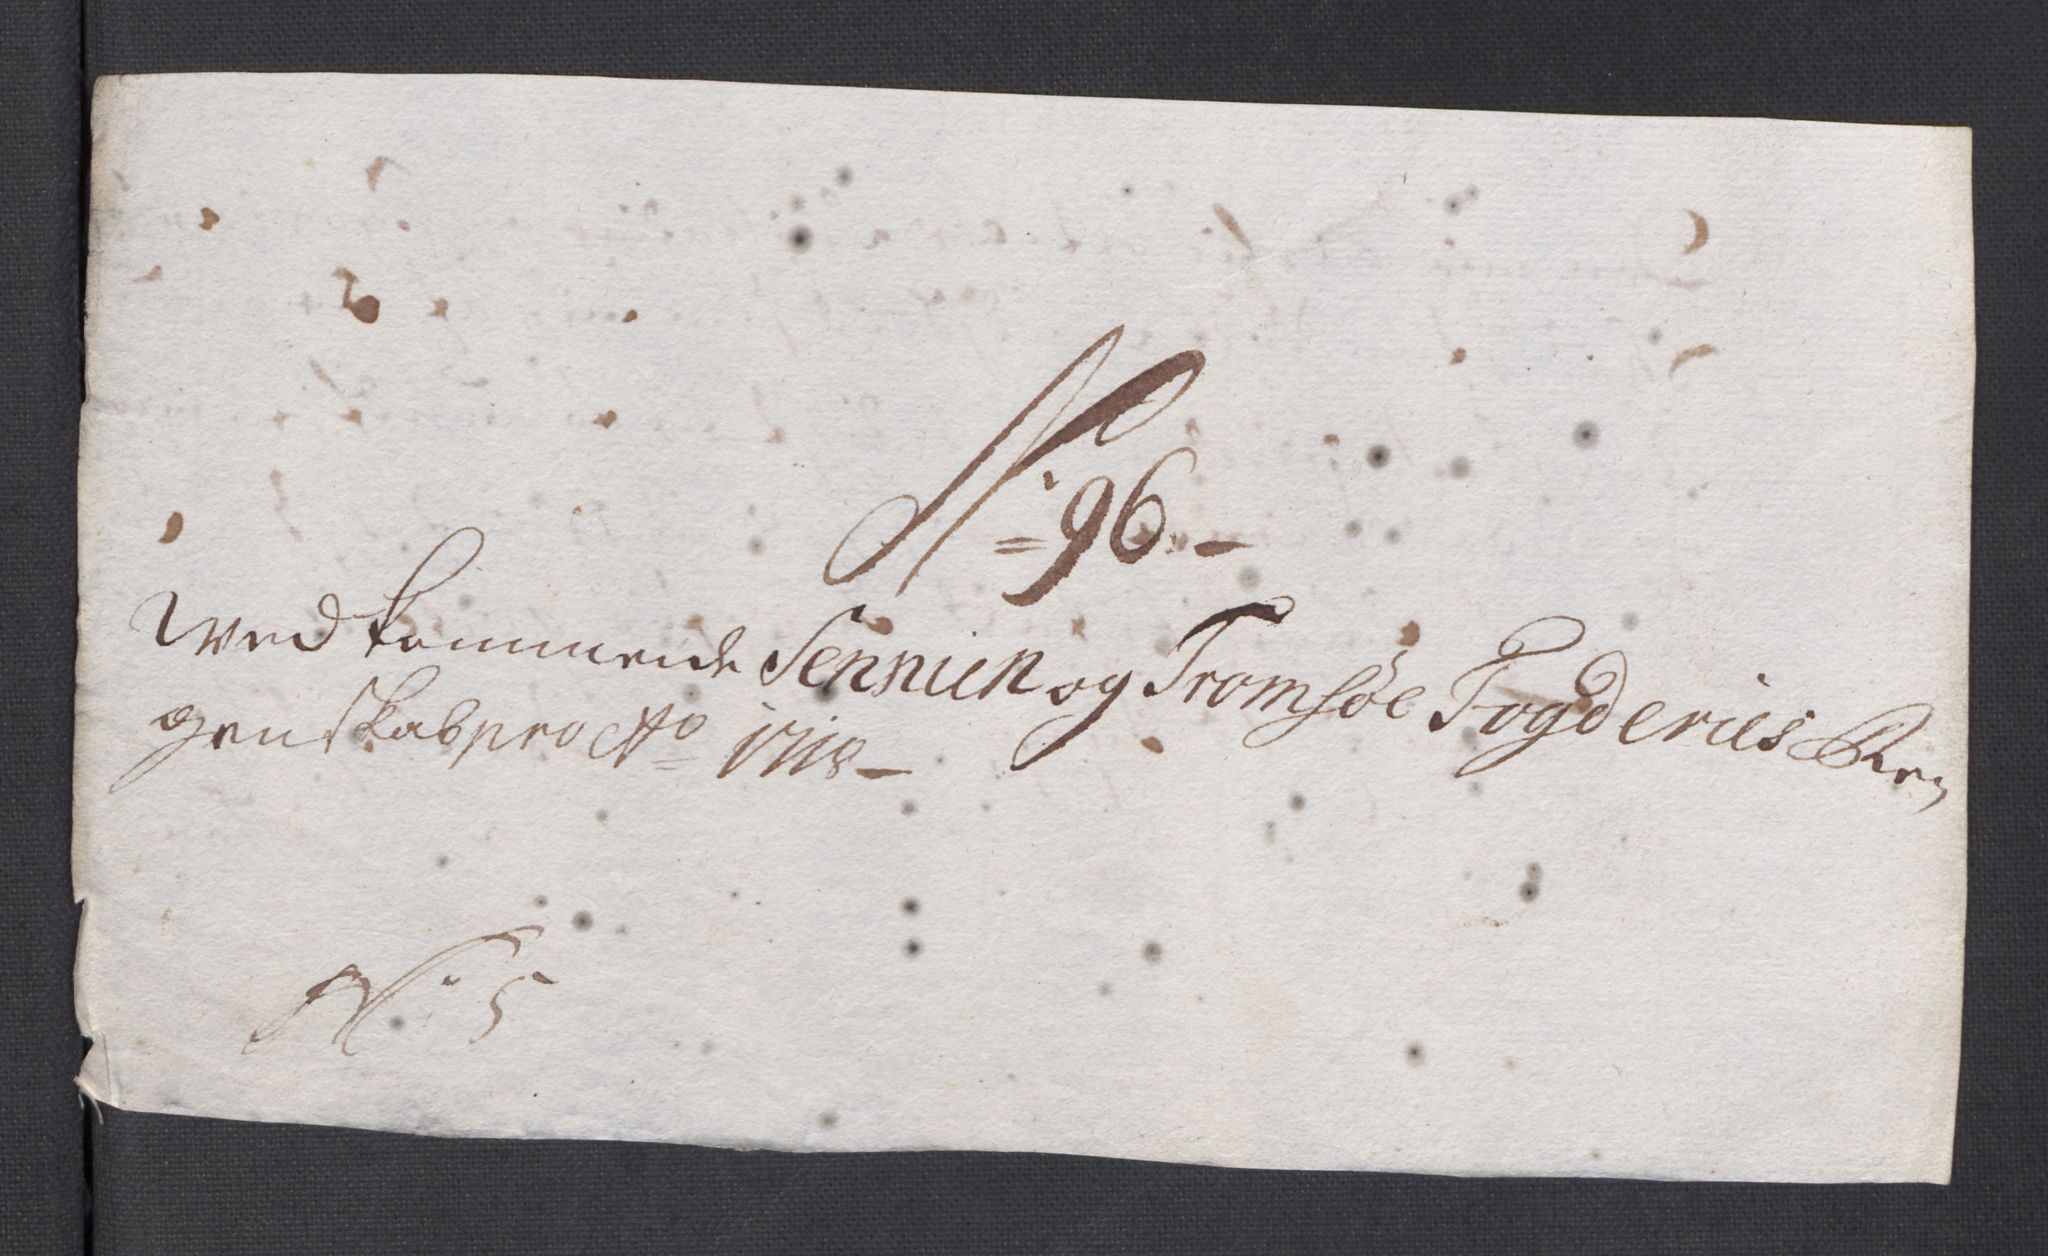 No: 96.
Wedkommende Sennien og Tromsöe Fogderies Re-
genskab pro Ao 1718
No: 5